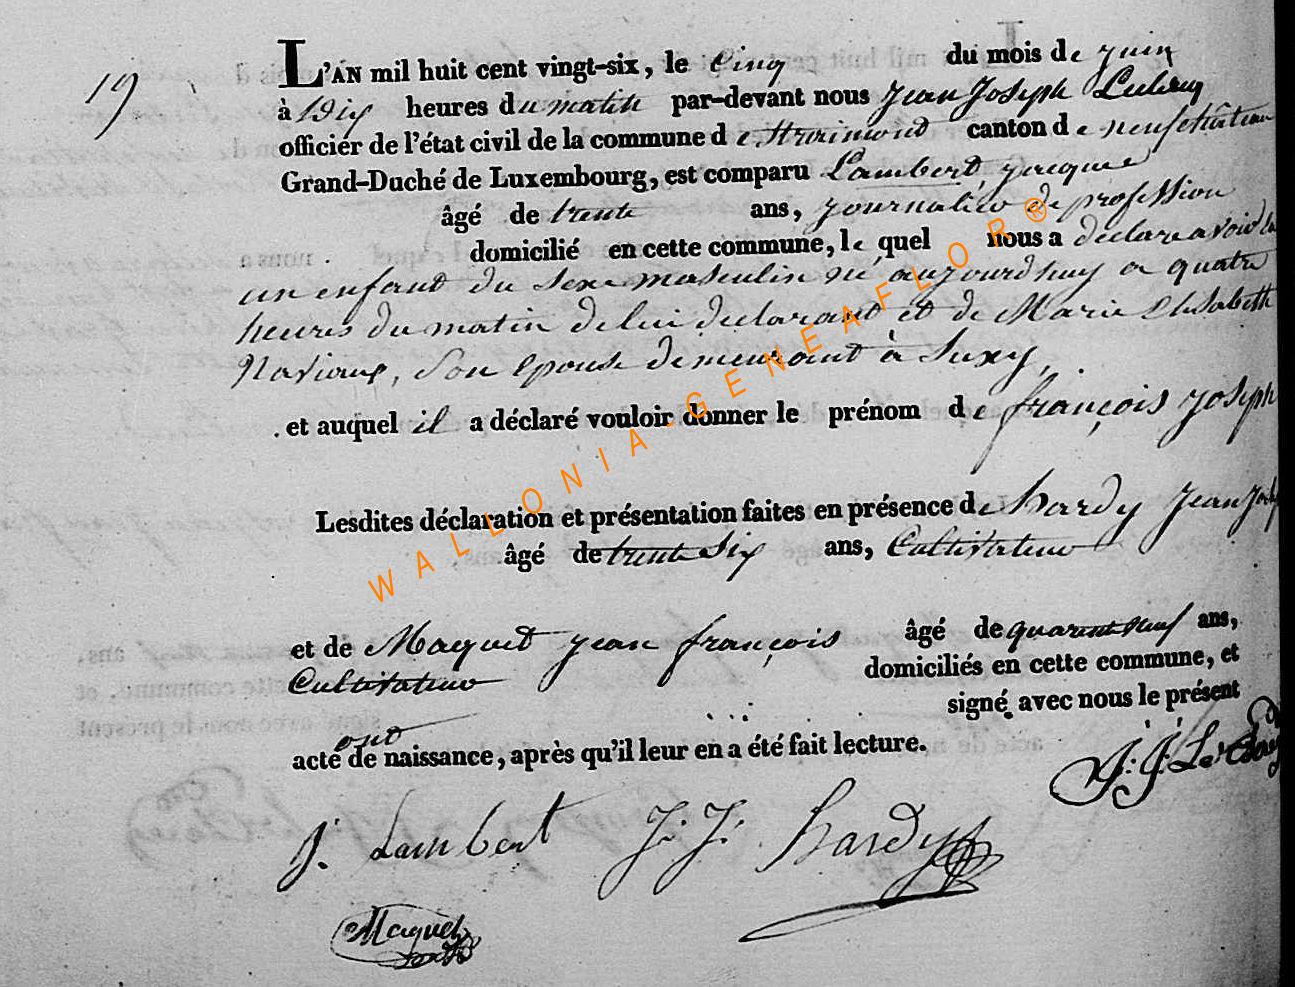 19
L'AN mil huit cent vingt-six, le Cinq du mois de juin
à Dix heures du matin par-devant nous Jean Joseph Leclerq
officier de l'état civil de la commune de Straimond canton de neufchâteau
Grand-Duché de Luxembourg, est comparu Lambert, jacque
âgé de trente ans, journalier de profession
domicilié en cette commune, le quel nous a déclaré avoir eu
un enfant du sexe masculin né aujourdhuy a quatre
heures du matin de lui déclarant et de Marie Elisabeth
son épouse demeurant à Suxy,
et auquel il a déclaré vouloir donner le prénom de françois joseph
Lesdites déclaration et présentation faites en présence de hardy Jean Jos
âgé de trente six ans, Cultivateur
et de Maquet jean françois âgé de quarante neuf ans,
Cultivateur domiciliés en cette commune, et
ont signé avec nous le présent
acte de naissance, après qu'il leur en a été fait lecture.
J: J: Le
J. Lambert J: J: hardy
Maquet
WALLONIA-GENEAFLOR®